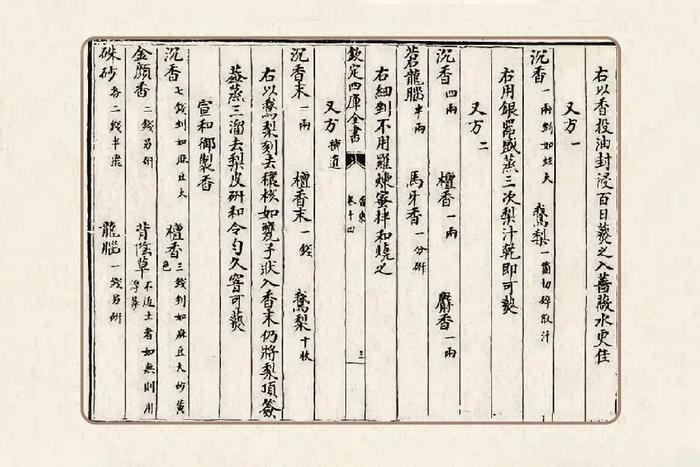 右以香投油封浸百日爇之入薔薇水更佳
又方一
沉香一兩剉如炷大 鵞梨一箇切碎取汁
右用銀器盛蒸三次梨汁乾即可爇
又方二
沉香四兩 檀香一兩 麝香一兩
蒼龍腦半兩 馬牙香一分研
右細剉不用羅煉蜜拌和燒之
欽定四庫全書 香乘 卷十四 三
又方補遺
沉香末一兩 檀香末一錢 鵞梨十枚
右以鵞梨刻去穰核如甕子狀入香末仍將梨頂簽
蓋蒸三溜去梨皮研和令勻久窨可爇
宣和御製香
沉香七錢剉如麻豆大 檀香三錢剉如麻豆大炒黃色
金顔香二錢另研 背陰草不近土者如無則用浮萍
硃砂各二錢半飛 龍腦一錢另研